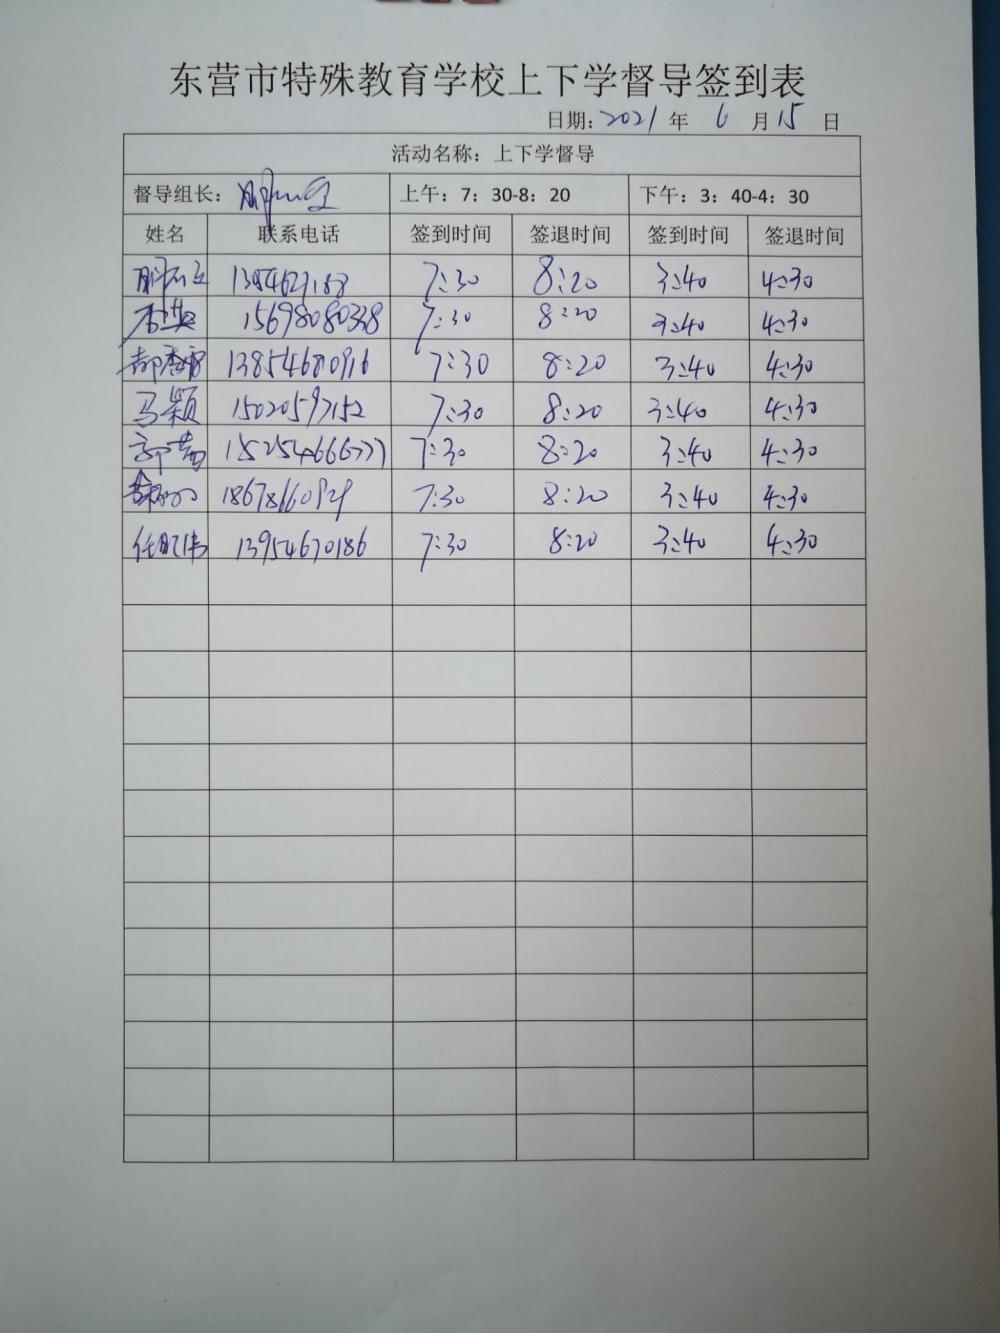 东营市特殊教育学校上下学督导签到表
日期: 2021 年 6 月 15 日
活动名称：上下学督导
督导组长： 上午：7：30-8：20 下午：3：40-4：30
姓名 联系电话 签到时间 签退时间 签到时间 签退时间
7:30 8:20 3:40 4:30
15698080338 7:30 8:20 3:40 4:30
13854680916 7:30 8:20 3:40 4:30
马颖 15020597152 7:30 8:20 3:40 4:30
15254666777 7:30 8:20 3:40 4:30
7:30 8:20 3:40 4:30
13954670186 7:30 8:20 3:40 4:30